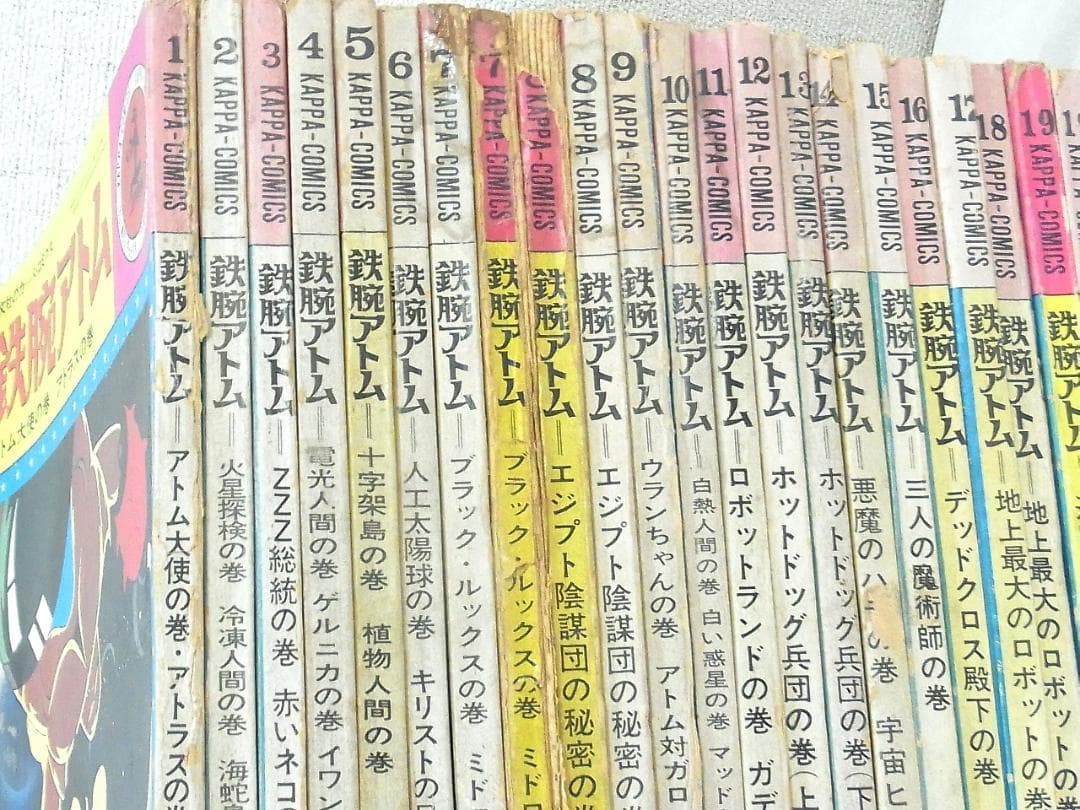 鉄腕アトム
アトム大使の巻 アトラスの巻
1 KAPPA-COMICS 鉄腕アトム=アトム大使の巻・アトラスの巻
2 KAPPA-COMICS 鉄腕アトム=火星探検の巻 冷凍人間の巻 海蛇
3 KAPPA-COMICS 鉄腕アトム=ZZZ総統の巻 赤いネコの
4 KAPPA-COMICS 鉄腕アトム=電光人間の巻 ゲルニカの巻 イワン
5 KAPPA-COMICS 鉄腕アトム=十字架島の巻 植物人間の巻
6 KAPPA-COMICS 鉄腕アトム=人工太陽球の巻 キリストの
7 KAPPA-COMICS 鉄腕アトム=ブラック・ルックスの巻 ミド
7 KAPPA-COMICS 鉄腕アトム=ブラック・ルックスの巻 ミド
KAPPA-COMICS 鉄腕アトム=エジプト陰謀団の秘密の
8 KAPPA-COMICS 鉄腕アトム=エジプト陰謀団の秘密の
9 KAPPA-COMICS 鉄腕アトム=ウランちゃんの巻 アトム対ガロ
10 KAPPA-COMICS 鉄腕アトム=白熱人間の巻 白い惑星の巻 マッド
11 KAPPA-COMICS 鉄腕アトム=ロボットランドの巻 ガデ
12 KAPPA-COMICS 鉄腕アトム=ホットドッグ兵団の巻(上
13 KAPPA-COMICS 鉄腕アトム=ホットドッグ兵団の巻(下
14 KAPPA-COMICS 鉄腕アトム=悪魔のハチの巻 宇宙ヒ
15 KAPPA-COMICS 鉄腕アトム=三人の魔術師の巻
16 KAPPA-COMICS 鉄腕アトム=デッドクロス殿下の巻
17 KAPPA-COMICS 鉄腕アトム=地上最大のロボットの巻
18 KAPPA-COMICS 鉄腕アトム=地上最大のロボットの巻
19 KAPPA-COMICS 鉄腕アトム